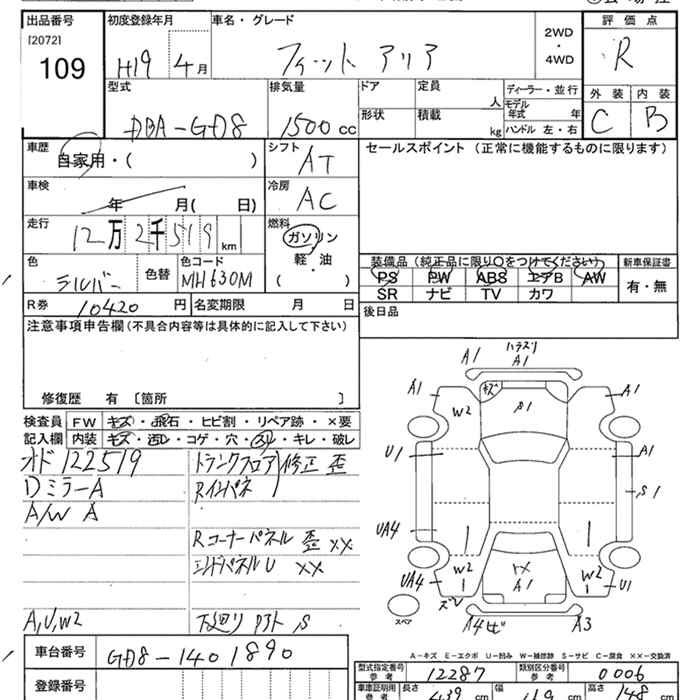 出品番号 初度登録年月 車名・グレード 評価点
[2072]
109
H19 4月 フィット アリア 2WD・4WD R
型式 排気量 ドア 定員 人 ディーラー・並行 外装 内装
形状 積載 kg モデル年式 年
ハンドル 左・右
DBA-GD8 1500cc C B
車歴 シフト セールスポイント (正常に機能するものに限ります)
自家用・( ) AT
車検 冷房
年 月( 日) AC
走行 燃料
12万2千519km ガソリン
軽・油
( )
色 色替 色コード
シルバー MH630M
装備品 (純正品に限り○をつけてください) 新車保証書
PS PW ABS エアB AW 有・無
SR ナビ TV カワ
R券 10420円 名変期限 月 日
後日品
注意事項申告欄 (不具合内容等は具体的に記入して下さい)
修復歴 有 〔箇所 〕
検査員 FW キズ・飛石・ヒビ割・リペア跡・×要
記入欄 内装 キズ・汚レ・コゲ・穴・スリ・キレ・破レ
オド122519 トランクフロア 修正 歪
Dミラー A Rインパネ
A/W A
Rコーナーパネル 歪 ××
エンドパネル U ××
A,U,W2 下廻り S
A1 A1
A1 キズ A1
W2 A1
U1 A1
S1
UA4
UA4 W2 トメ A1 W2 U1
スペア A3
A-キズ E-エクボ U-凹み W-補修跡 S-サビ C-腐食 ××-交換済
車台番号 GD8-1401890
型式指定番号 参考 12287 類別区分番号 参考 0006
登録番号
車庫証明用 参考 長さ 439cm 幅 cm 高さ 148cm